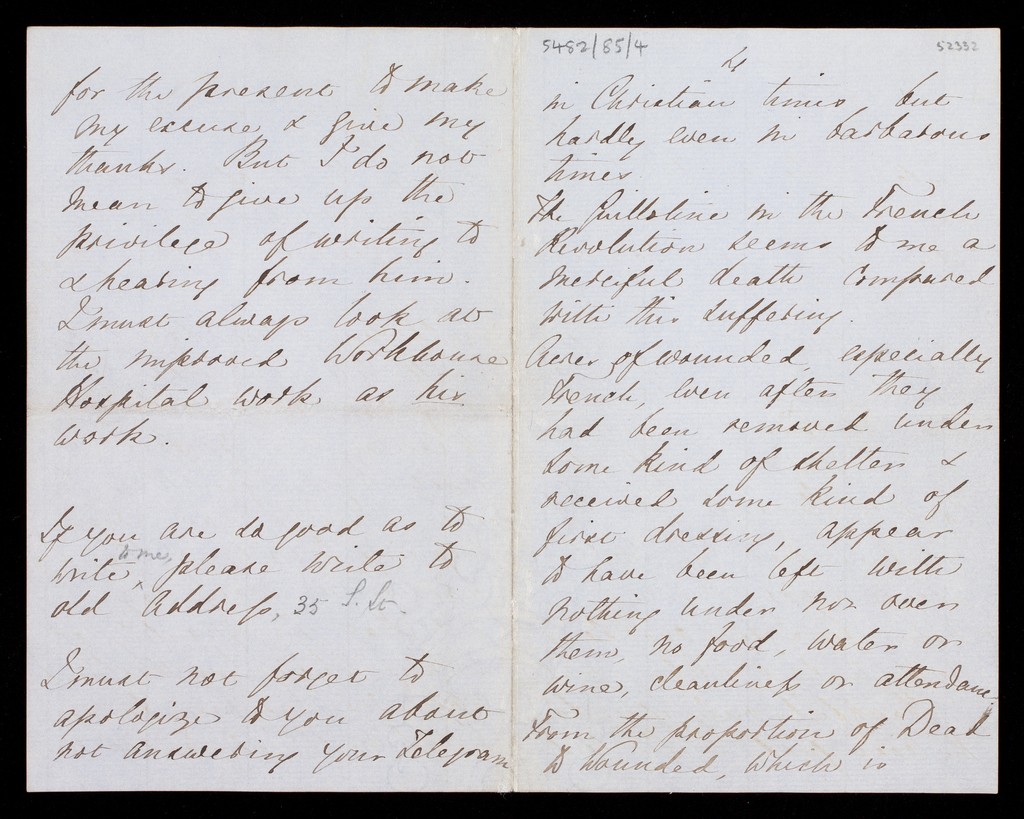 for the present to make
my excuse & give my
thanks. But I do not
mean to give up the
privilege of writing to
& hearing from him.
I must always look at
the improved Workhouse
Hospital work as his
work.
If you are so good as to
write to me, please write to
old address, 35 S. St.
I must not forget to
apologize to you about
not answering your Telegram
5482/85/4
52332
in Christian times, but
hardly even in barbarous
times.
The Guillotine in the French
Revolution seems to me a
merciful death compared
with this suffering.
Acres of wounded, especially
French, even after they
had been removed under
some kind of shelter &
received some kind of
first dressing, appear
to have been left with
nothing under nor over
them, no food, water or
wine, cleanliness or attendance
From the proportion of Dead
to Wounded, which is